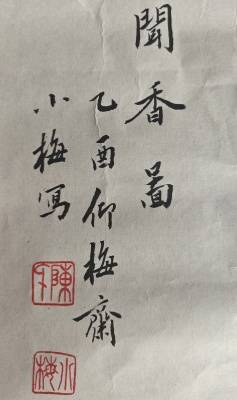 聞香啚
乙酉仰梅齋
小梅寫
陳
小梅